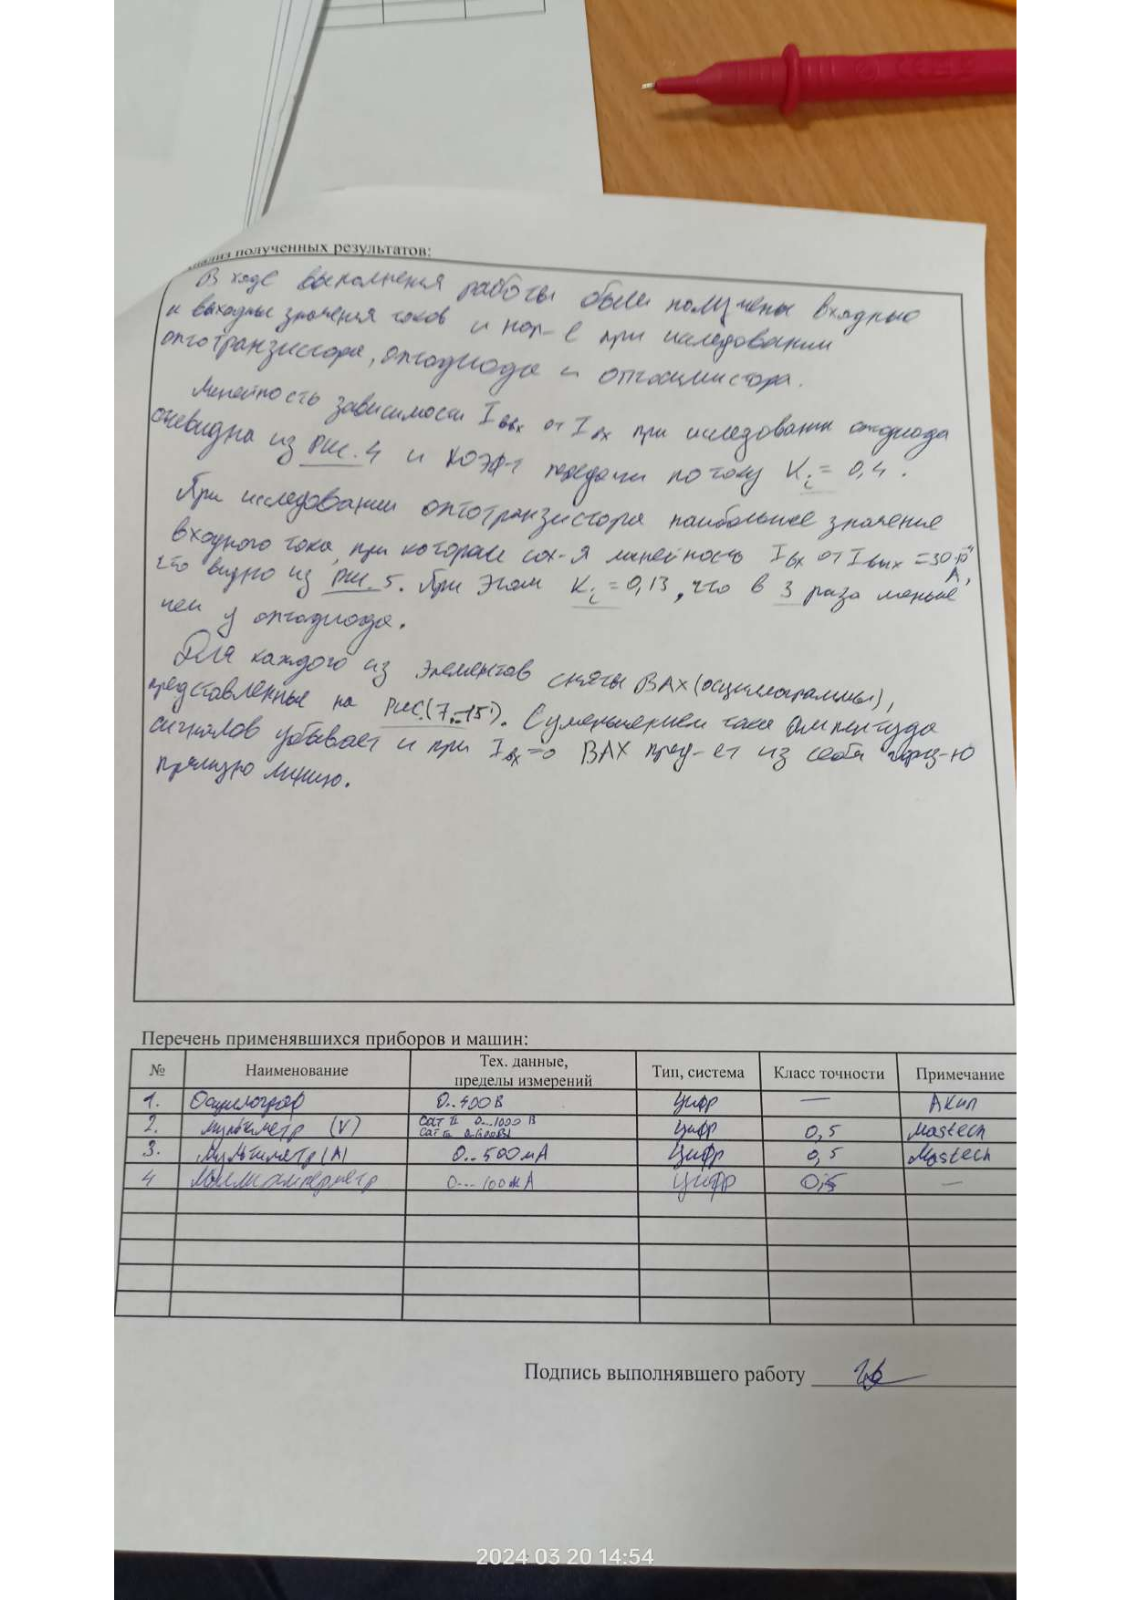 анализ полученных результатов:
В ходе выполнения работы были получены входные
и выходные значения токов и нап-е при иследовании
оптотранзистора, оптодиода и оптосимистора.
Линейность зависимости Iвых от Iвх при иследовании оптодиода
очевидна из рис. 4 и коэф-т передачи по току Ki = 0,4.
При исследовании оптотранзистора наибольшее значение
входного тока, при котором сох-я линейность Iвх от Iвых = 30
А,
что видно из рис. 5. При этом Ki = 0,13, что в 3 раза меньше
чем у оптодиода.
Для каждого из элементов сняты ВАХ (осциллограммы),
представленные на рис. (7..15). С уменьшением тока амплитуда
сигналов убывает и при Iвх=0 ВАХ пред-ет из себя гориз-ю
прямую линию.
Перечень применявшихся приборов и машин:
№ Наименование Тех. данные, пределы измерений Тип, система Класс точности Примечание
1. Осцилограф 0..400В Цифр — Акип
2. Мультиметр (V) CAT II 0...1000 В Цифр 0,5 Mastech
3. Мультиметр (А) 0..500мА Цифр 0,5 Mastech
4 Миллиамперметр 0...100мА Цифр 0,5 —
Подпись выполнявшего работу
2024 03 20 14:54